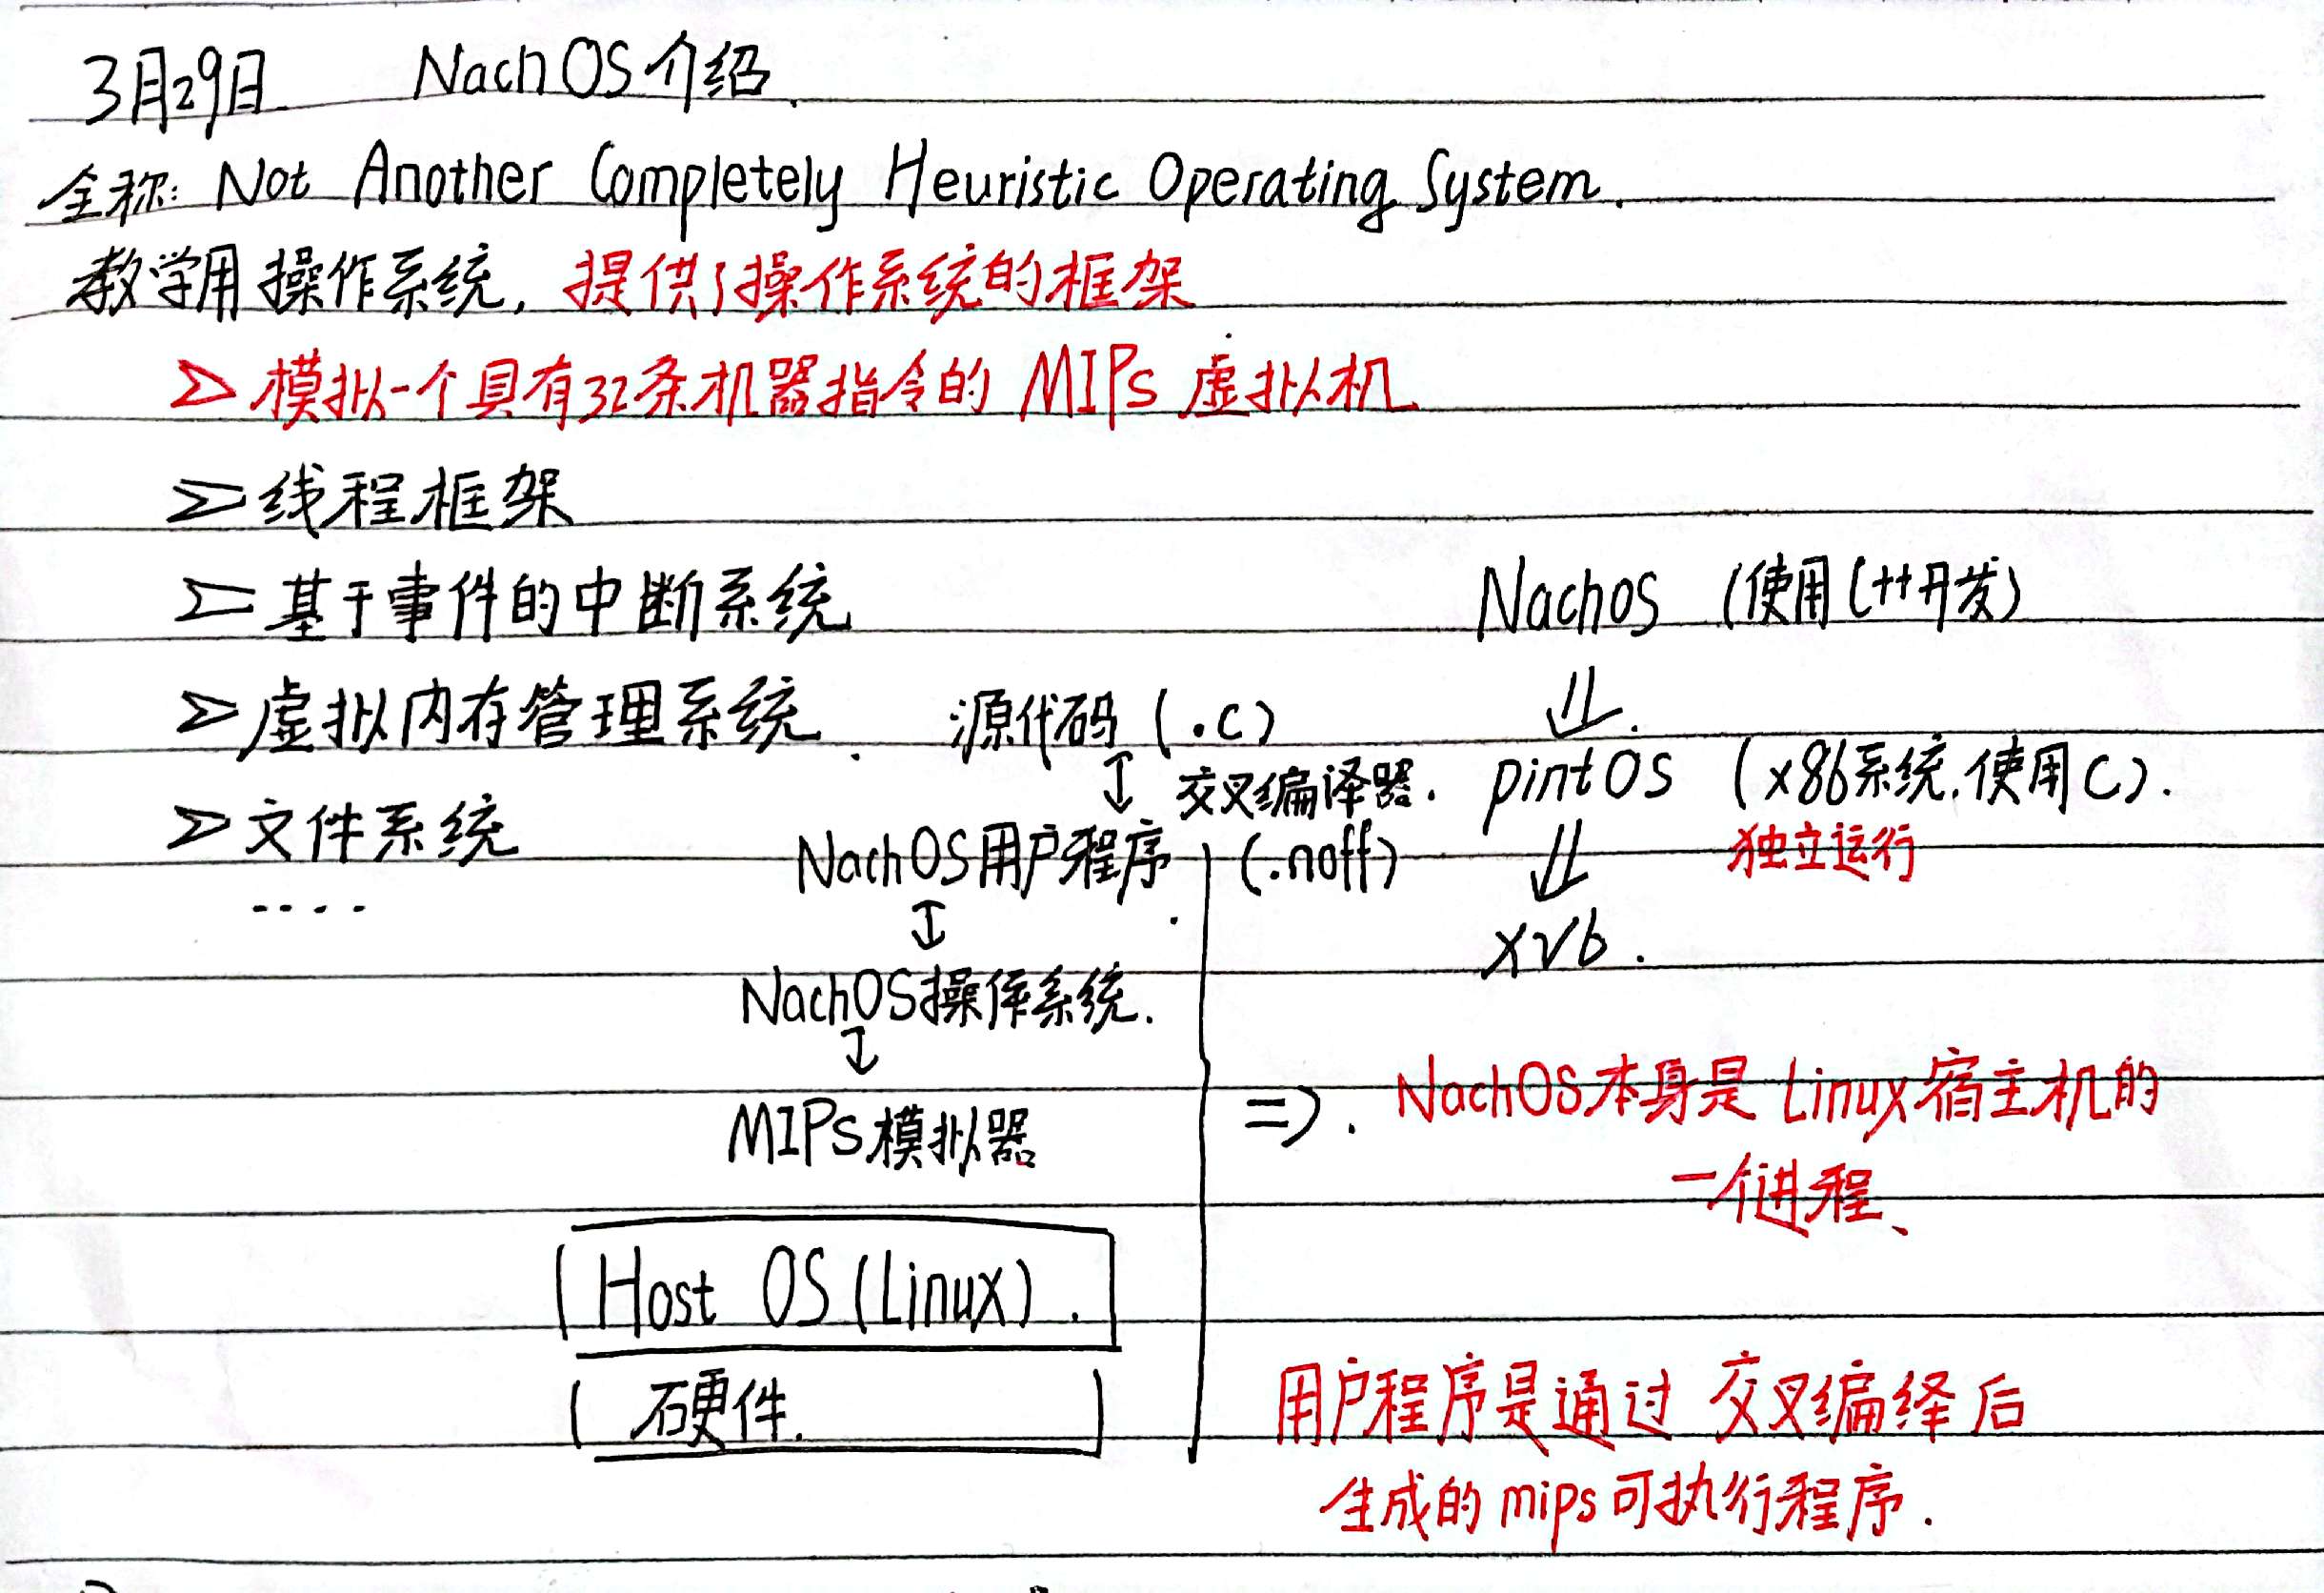 3月29日 NachOS介绍.
全称: Not Another Completely Heuristic Operating System.
教学用操作系统, 提供了操作系统的框架
模拟一个具有32条机器指令的 MIPs 虚拟机
线程框架
基于事件的中断系统
虚拟内存管理系统.
文件系统
....
源代码 (.c)
交叉编译器.
NachOS用户程序. (.noff)
NachOS操作系统.
MIPs模拟器
Host OS (Linux).
硬件.
Nachos (使用C++开发)
pintOS (x86系统,使用C).
独立运行
xv6.
=>. NachOS本身是 Linux宿主机的
一个进程、
用户程序是通过 交叉编绎后
生成的 mips 可执行程序.